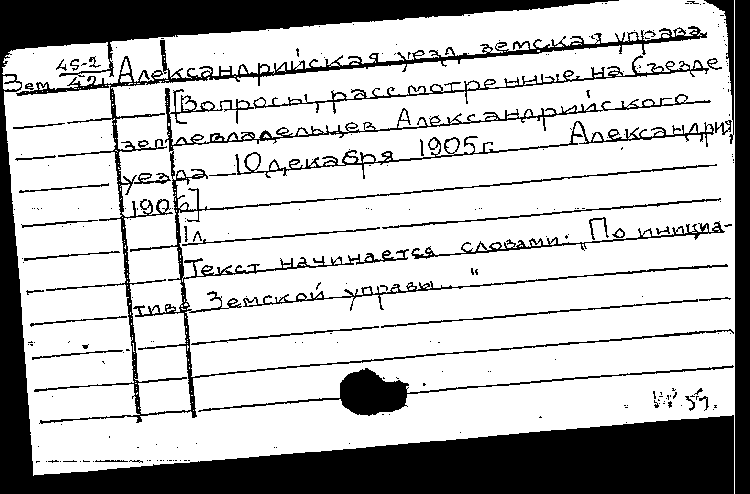 Зем. 45-2/42 Александрийская уезд. земская управа
[Вопросы, рассмотренные на Съезде
землевладельцев Александрийского
уезда 10 декабря 1905 г. Александрия,
1905].
1 л.
Текст начинается словами: „По инициа-
тиве Земской управы..."